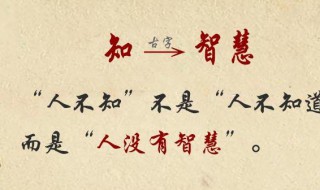 知 古字 → 智慧
“人不知”不是“人不知道
而是“人没有智慧”。